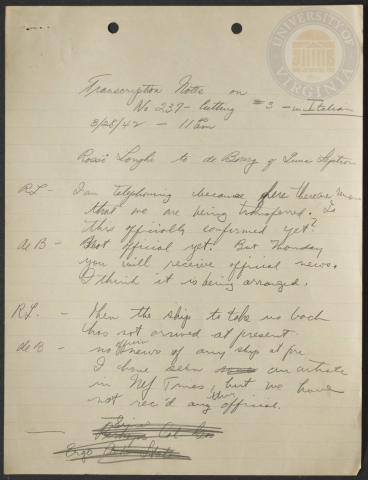 UNIVERSITY OF VIRGINIA
Transcription Notes on
No 237 - Cutting #3 - in Italian
3/28/42 - 11 am
Rossi Longhi to de Bourg of Swiss
R L - I am telephoning because here there are
that we are being transferred. Is
this officially confirmed yet?
de B - Not official yet. But Monday
you will receive official news.
I think it is being arranged.
R L. - then the ship to take us back
has not arrived at present
de B - no official news of any ship at pre.
I have seen an article
in NY Times, but we have
not rec'd any thing official.
Ergo